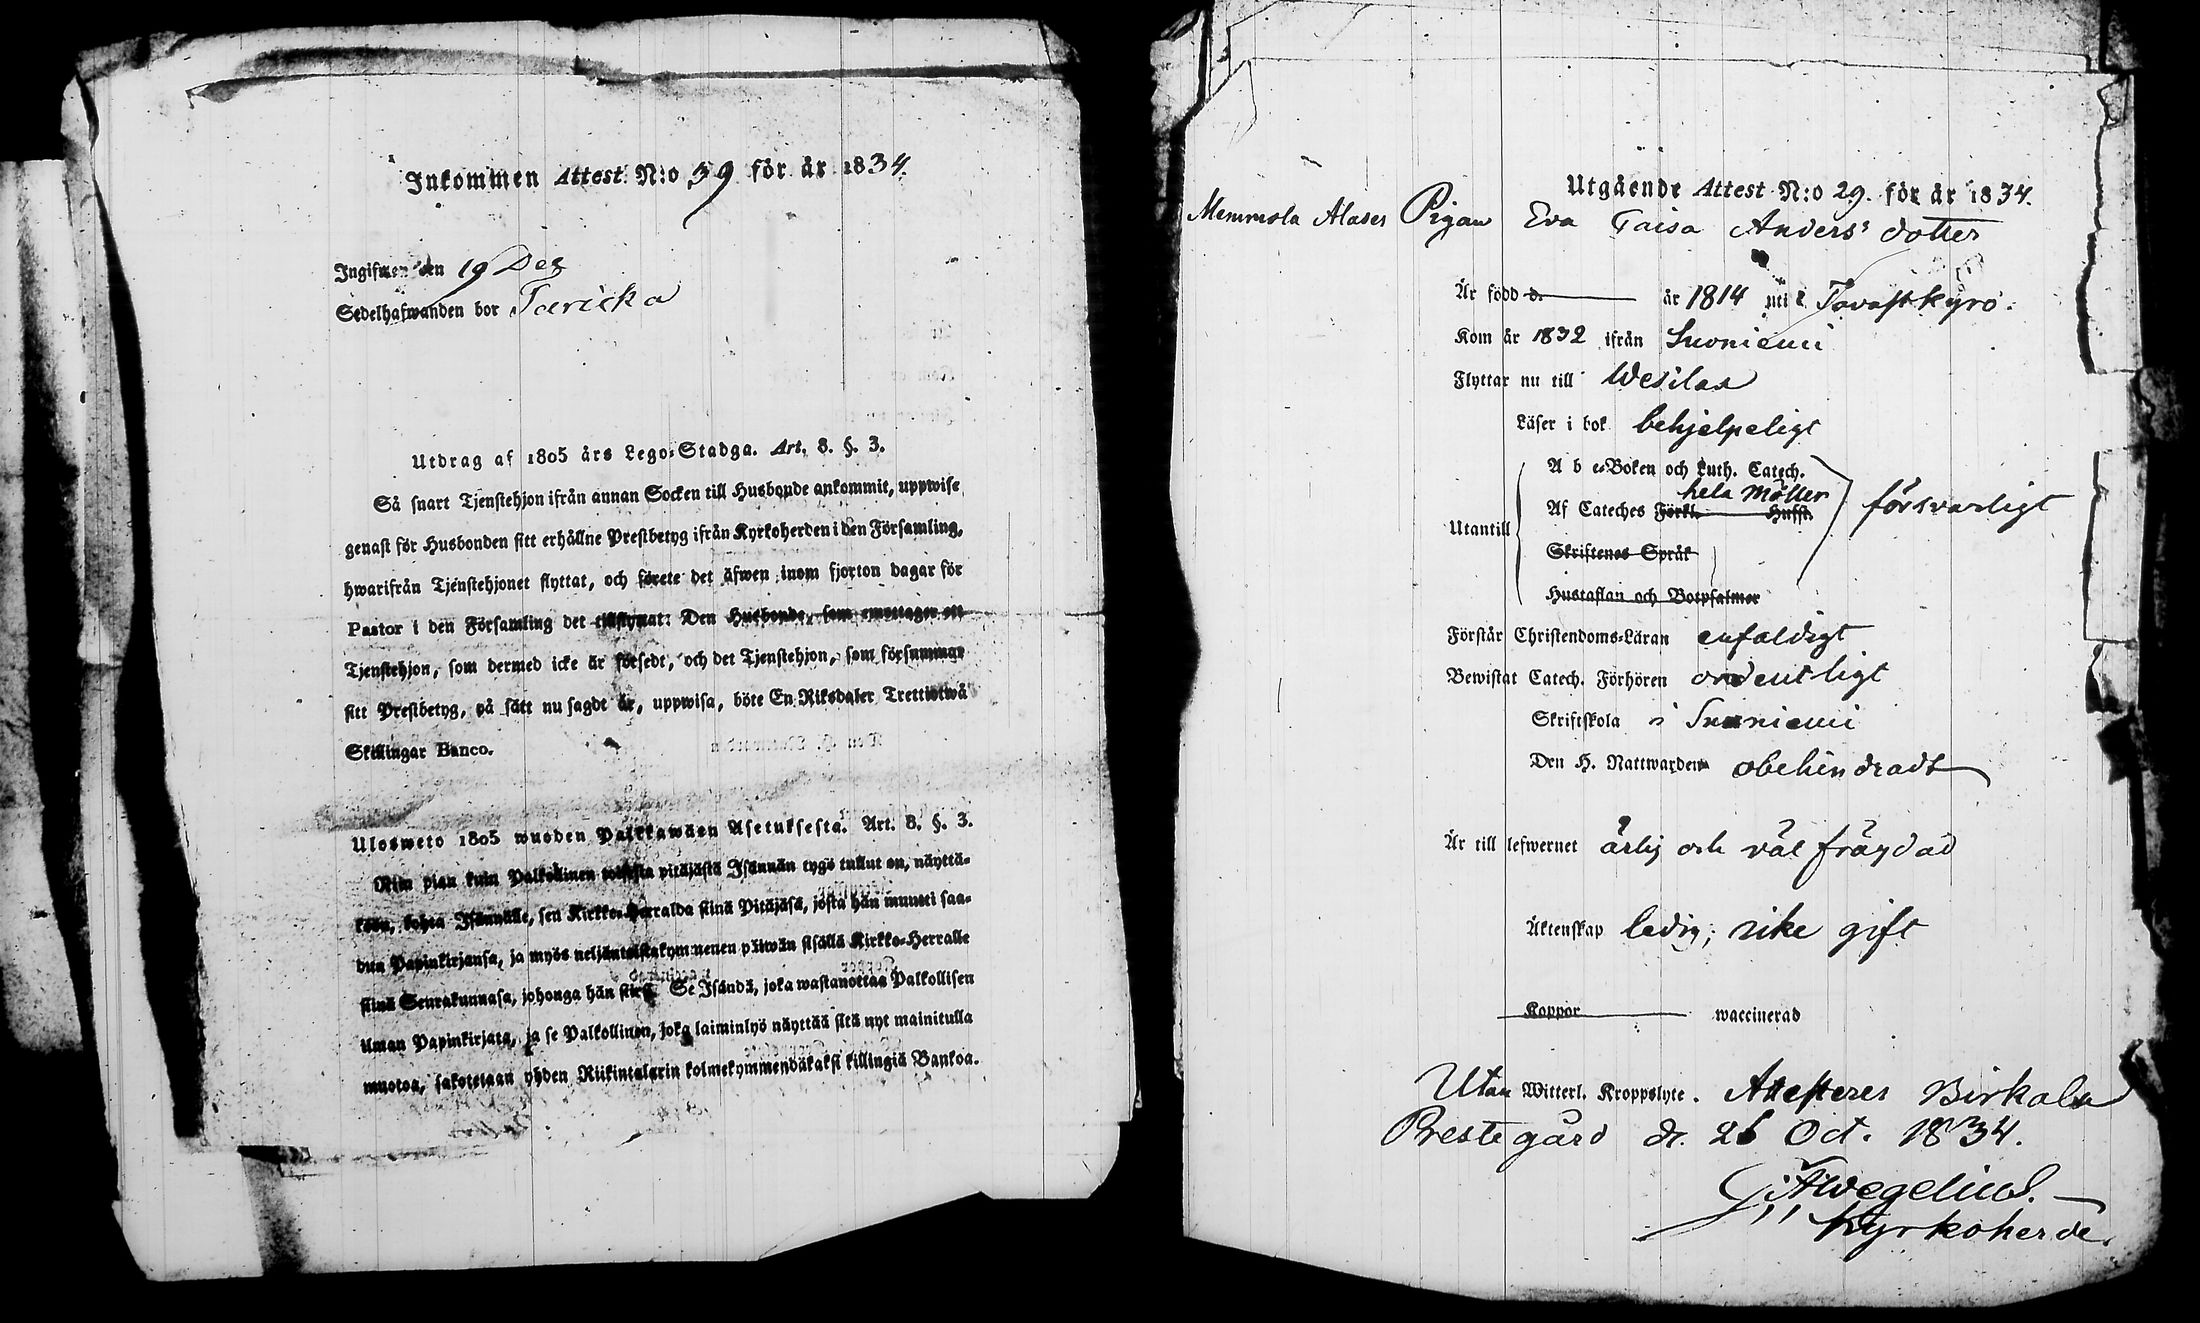 Inkommen Attest N:o 39 för år 1834.
Ingifwen den 19 Dec
Sedelhafwanden bor Taricka
Utdrag af 1805 års Lego-Stadga. Art. 8. §. 3.
Så snart Tjenstehjon ifrån annan Socken till Husbonde ankommit, uppwise
genast för Husbonden sitt erhållne Prestbetyg ifrån Kyrkoherden i den Församling,
hwarifrån Tjenstehjonet flyttat, och förete det äfwen inom fjorton dagar för
Pastor i den Församling det tillflyttat: Den Husbonde, som emottager ett
Tjenstehjon, som dermed icke är försedt, och det Tjenstehjon, som försummar
sitt Prestbetyg, på sätt nu sagdt är, uppwisa, böte En Riksdaler Trettiotwå
Skillingar Banco.
Ulosweto 1805 wuoden Palkkawäen Asetuksesta. Art. 8. §. 3.
Niin pian kuin Palkollinen toisesta pitäjästä Isännän tygö tullut on, näyttä-
köön, kohta Isännälle, sen Kirkko-Herralda siinä Pitäjäsä, josta hän muutti saa-
dun Papinkirjansa, ja myös neljäntoistakymmenen päiwän sisällä Kirkko-Herralle
siinä Seurakunnasa, johonga hän siirsi. Se Isändä, joka wastanottaa Palkollisen
ilman Papinkirjata, ja se Palkollinen, joka laiminlyö näyttää sitä nyt mainitulla
muotoa, sakotetaan yhden Riikintalarin kolmekymmendäkaksi killingiä Bankoa.
Utgående Attest N:o 29. för år 1834.
Memmola Alases Pigan Eva Caisa Anders' dotter
Är född d. år 1814 uti Tavastkyro.
Kom år 1832 ifrån Suoniemi
Flyttar nu till Wesilax
Läser i bok behjelpeligt
A b c-Boken och Luth. Catech.
hela Möller
Utantill Af Cateches Förkl. Hufst. försvarligt
Skriftenes Språk
Hustaflan och Botpsalmer
Förstår Christendoms-Läran enfaldigt
Bewistat Catech. Förhören ordentligt
Skriftskola i Suoniemi
Den H. Nattwarden obehindradt
Är till lefwernet ärlig och väl frägdad
Äktenskap ledig; icke gift
Koppor waccinerad
Utan Witterl. Kroppslyte. Attesteres Birkala
Prestegård d. 26 Oct. 1834.
Wegelius.
Kyrkoherde.